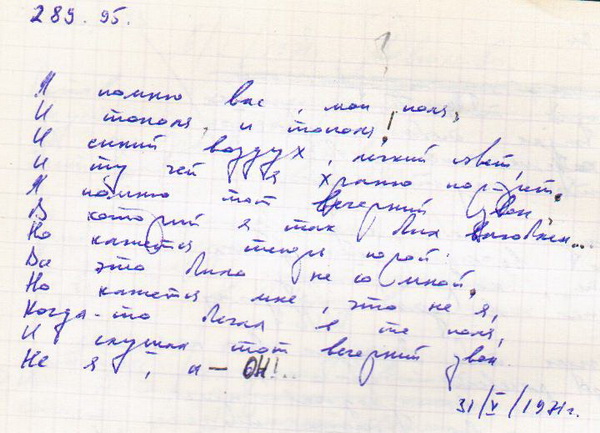 289.95.
?
Я помню вас, мои поля,
И тополя, и тополя!
И синий воздух, легкий свет,
И ту чей я храню портрет.
Я помню тот вечерний звон
В который я так был влюблён...
Но кажется теперь порой:
Все это было не со мной,
Но кажется мне, это не я,
Когда-то бегал в те поля,
И слушал тот вечерний звон
Не я, а — ОН!..
31/V/1971г.